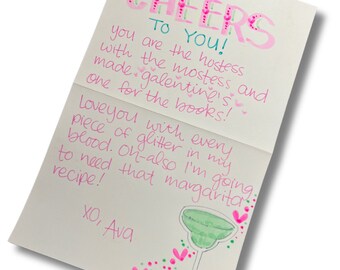 CHEERS
TO YOU!
you are the hostess
with the mostess and
made galentine's
one for the books!
Love you with every
piece of glitter in my
blood. Oh-also I'm going
to need that margarita
recipe!
xo, Ava